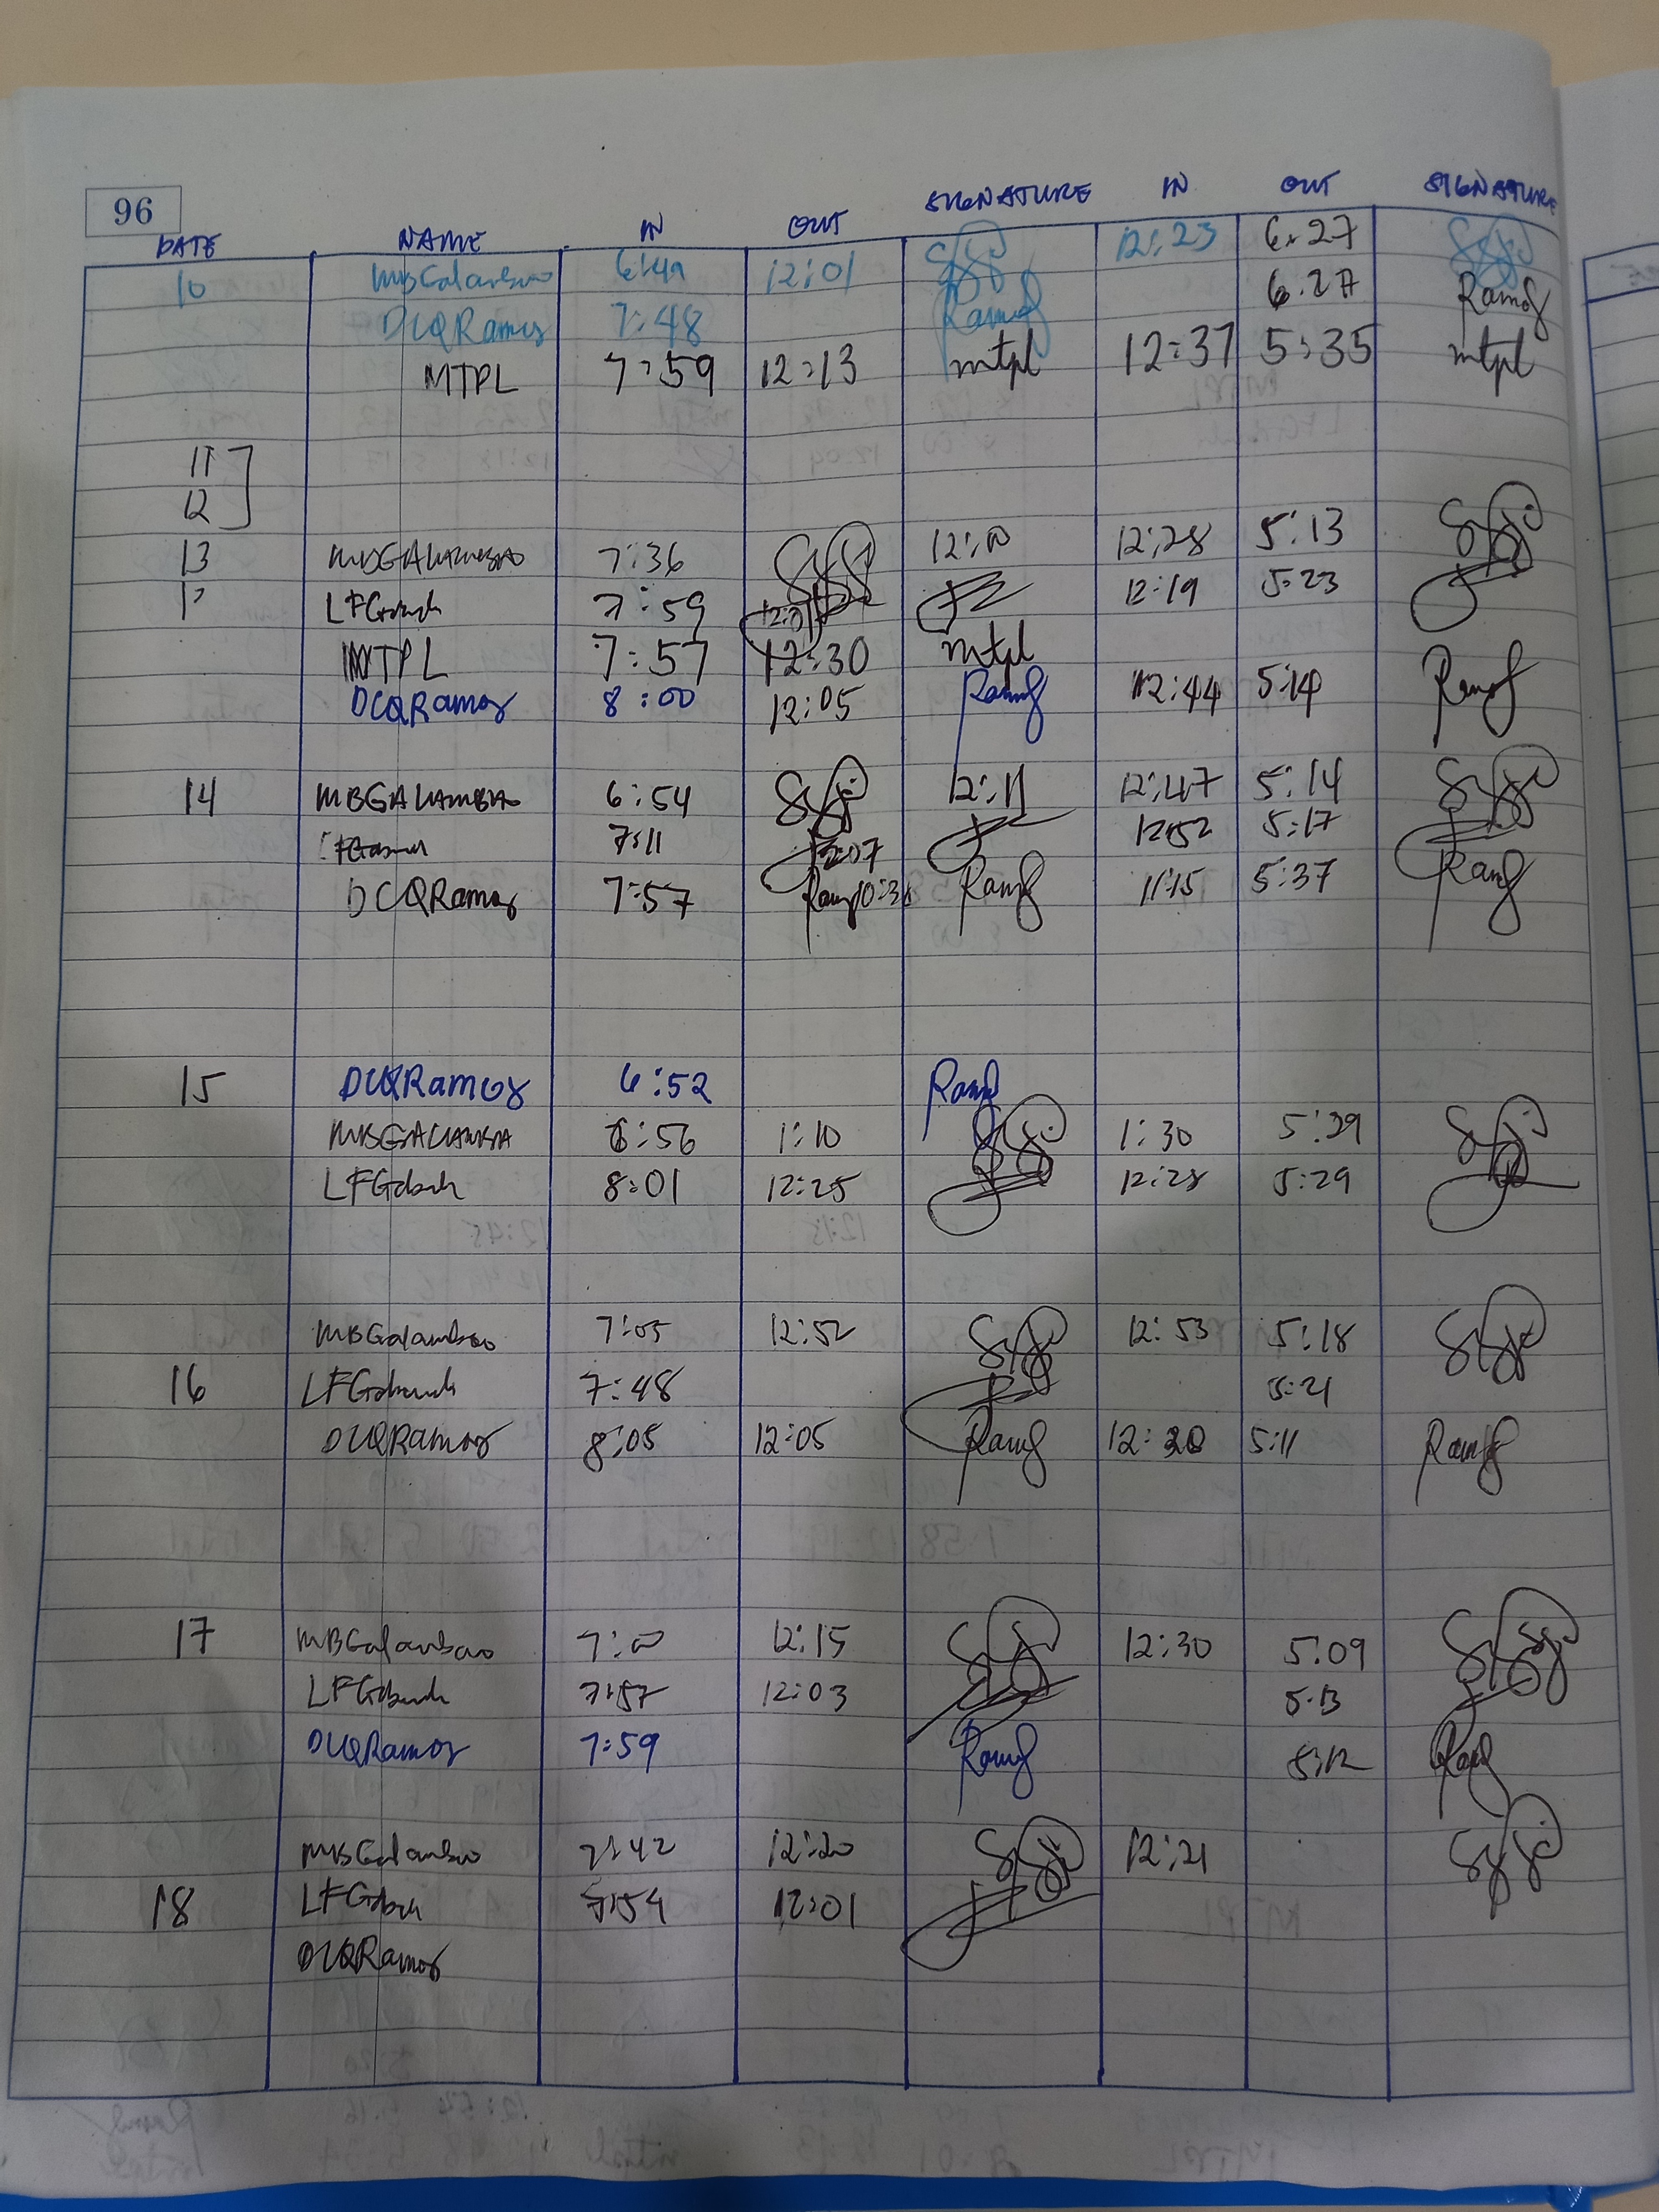 96
DATE NAME IN OUT SIGNATURE IN OUT SIGNATURE
10 MBGalambao 6:49 12:01 12:23 6:27
DCQRamos 7:48 Ramos 6:27 Ramos
MTPL 7:59 12:13 mtpl 12:37 5:35 mtpl
11
12
13 MBGALAMBAO 7:36 12:00 12:28 5:13
LFG 7:59 12:19 5:23
MTPL 7:57 12:30 mtpl
DCQRamos 8:00 12:05 Ramos 12:44 5:14 Ramos
14 MBGALAMBAO 6:54 12:11 12:47 5:14
7:11 12:07 12:52 5:17
DCQRamos 7:57 Ramos 10:36 Ramos 11:15 5:37 Ramos
15 DCQRamos 6:52 Ramos
MBGALAMBAO 6:56 1:10 1:30 5:29
LFG 8:01 12:25 12:28 5:29
MBGalambao 7:05 12:52 12:53 5:18
16 LFG 7:48 5:21
DCQRamos 8:05 12:05 Ramos 12:20 5:11 Ramos
17 MBGalambao 7:00 12:15 12:30 5:09
LFG 7:57 12:03 5:13
DCQRamos 7:59 Ramos 5:12 Ramos
MBGalambao 7:42 12:20 12:21
18 LFG 7:54 12:01
DCQRamos